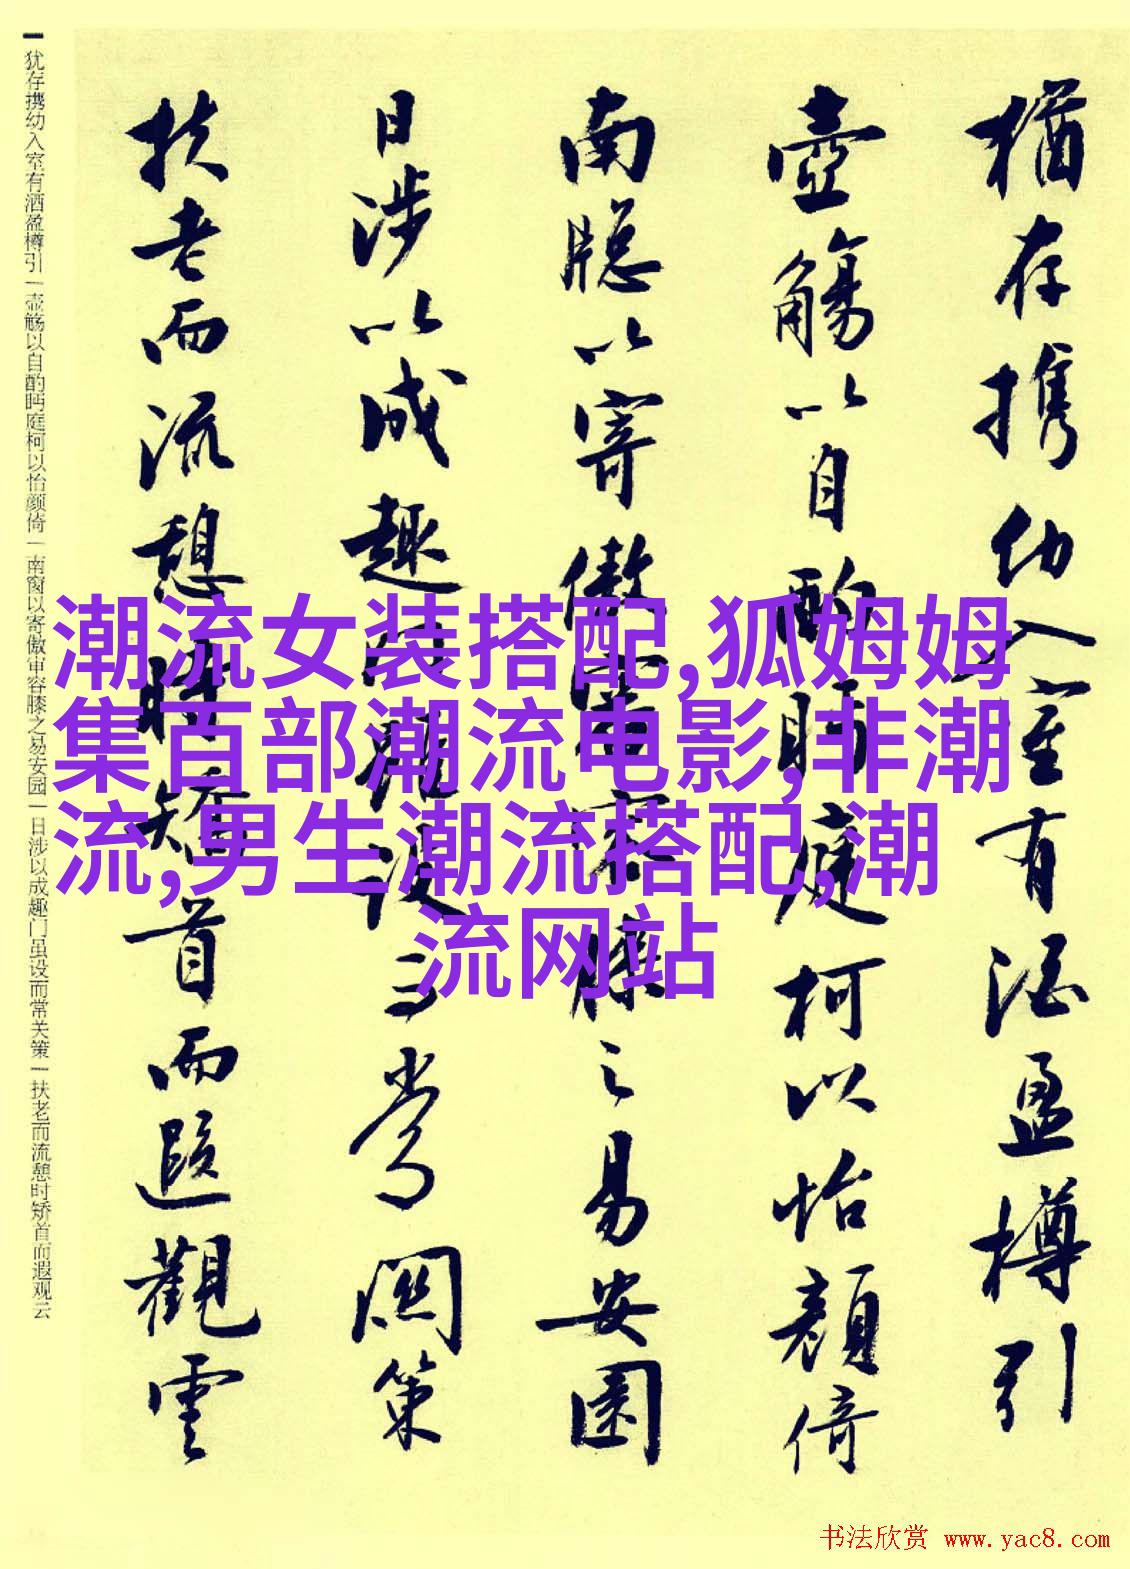 猶存携幼入室有酒盈樽引
壺觴以自酌眄庭柯以怡顏倚
南牕以寄傲審容膝之易安園
日涉以成趣門雖設而常關策
扶老而流憩時矯首而遐觀雲
犹存携幼入室有洒盈樽引|壶觞以自酌眄庭柯以怡颜倚|南窗以寄傲审容膝之易安园|日涉以成趣门虽设而常关策|扶老而流憩时矫首而遐观云
潮流女装搭配,狐姆姆
集百部潮流电影,非潮
流,男生潮流搭配,潮
流网站
书法欣赏 www.yac8.com